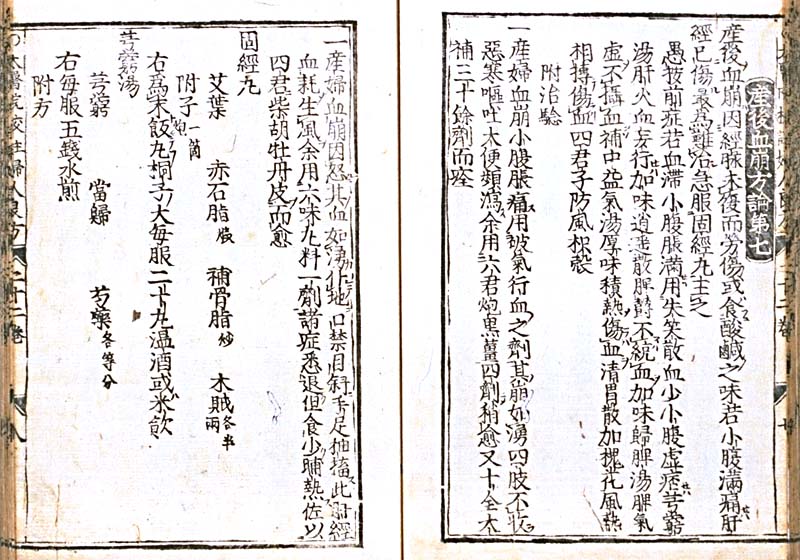 産後血崩方論第七
産後血崩因經脉未復而勞傷或食酸鹹之味若小腹滿痛肝
經已傷最爲難治急服固經丸主之
愚按前症若血滯小腹脹滿用失笑散血少小腹虚痞芎藭
湯肝火血妄行加味逍遥散脾欝不統血加味歸脾湯脾氣
虚不攝血補中益氣湯厚味積熱傷血清胃散加槐花風熱
相搏傷血四君子防風枳殻
附治驗
一産婦血崩小腹脹痛用破氣行血之劑其崩如湧四肢不收
惡寒嘔吐大便頻瀉余用六君炮黒薑四劑稍愈又十全大
補三十餘劑而痊
一産婦血崩因怒其血如湧仆地口禁目斜手足抽搐此肝經
血耗生風余用六味丸料一劑諸症悉退但食少晡熱佐以
四君柴胡牡丹皮而愈
固經丸
艾葉 赤石脂煅 補骨脂炒 木賊各半兩
附子炮一箇
右爲末飯丸桐子大每服二十丸温酒或米飲
芎藭湯
芎藭 當歸 芍藥各等分
右每服五錢水煎
附方
太醫院校註婦人良方 二十二卷